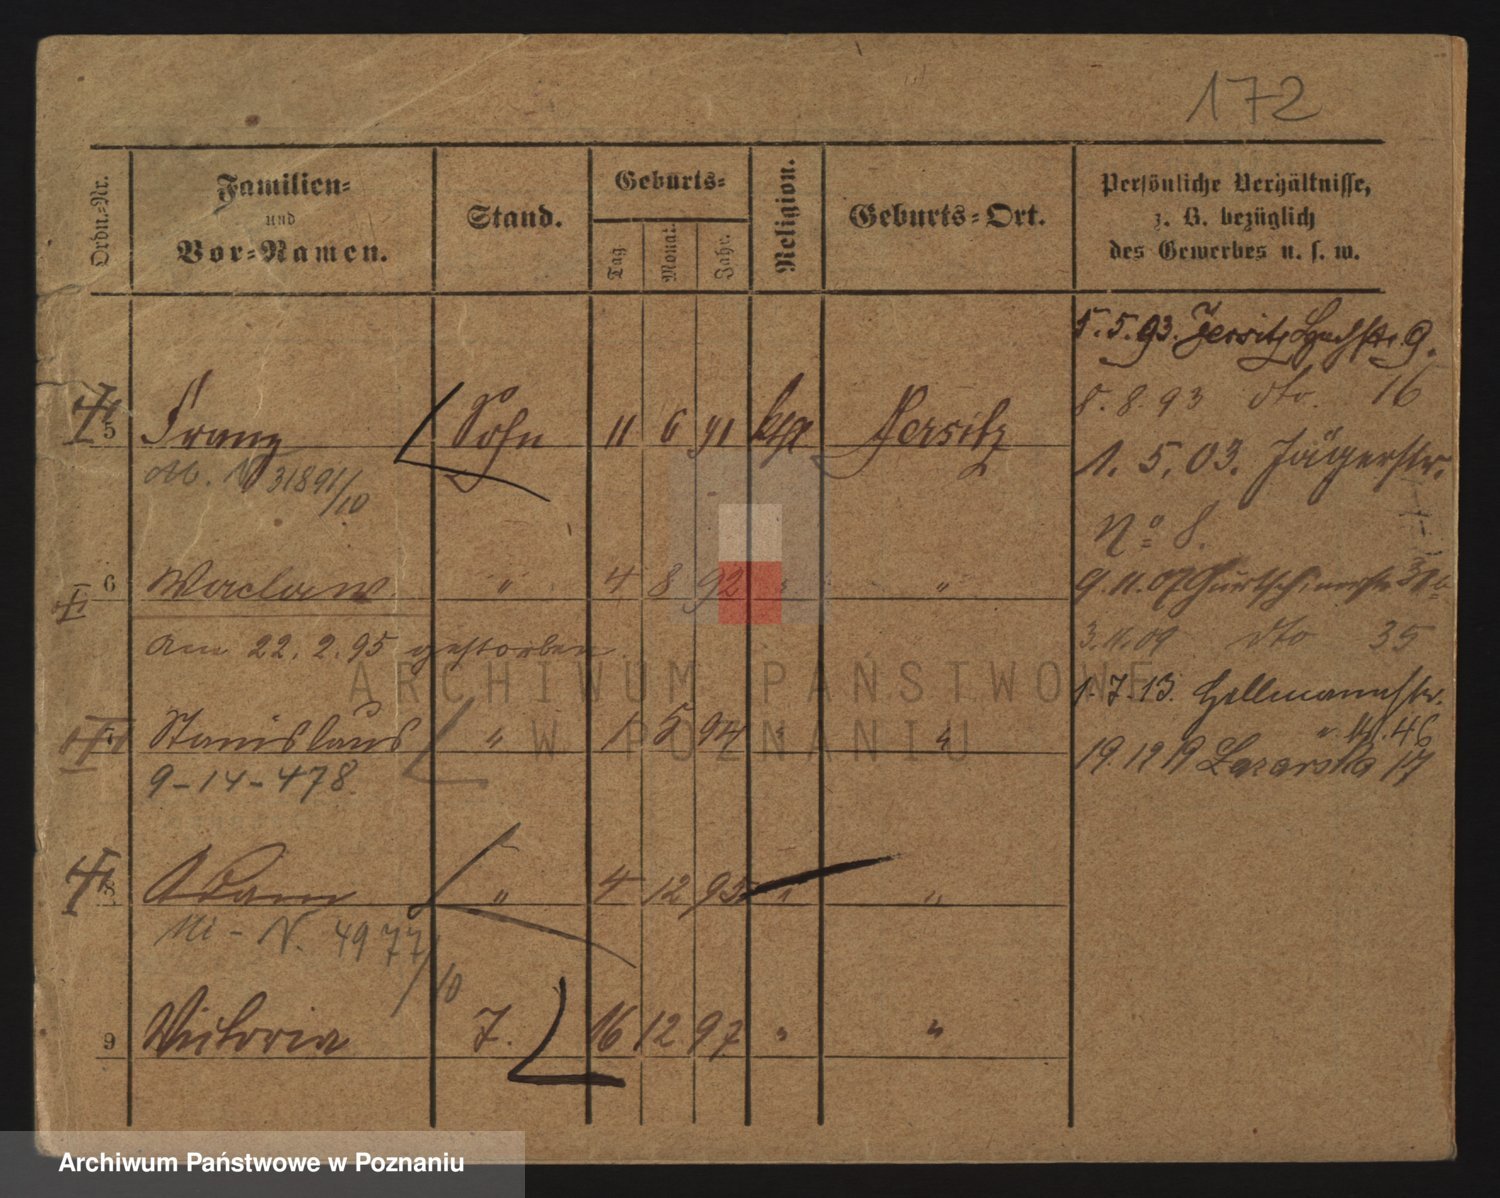 172
Ordn.-Nr.
Familien-
und
Vor-Namen.
Stand.
Geburts-
Tag.
Monat.
Jahr.
Religion.
Geburts-Ort.
Persönliche Verhältnisse,
z. B. bezüglich
des Gewerbes u. s. w.
5.5.93. Jersitz 9.
5.8.93 dto. 16
5 Franz Sohn 11 6 91 kth Jersitz
31891/10
1.5.03. Jägerstr.
No 8.
6 Waclaw " 4 8 92 " "
9.11.07 Gurtschinerstr
am 22.2.95 gestorben.
3.11.09 dto 35
1.7.13. Hellmannstr.
7 Stanislaus " 1 5 94 " "
46
9-14-478
19.12 19 Lazarska 17
8 Adam " 4 12 95 " "
Mi - N. 4977/10
9 Victoria T. 16 12 97 " "
ARCHIWUM PAŃSTWOWE
W POZNANIU
Archiwum Państwowe w Poznaniu